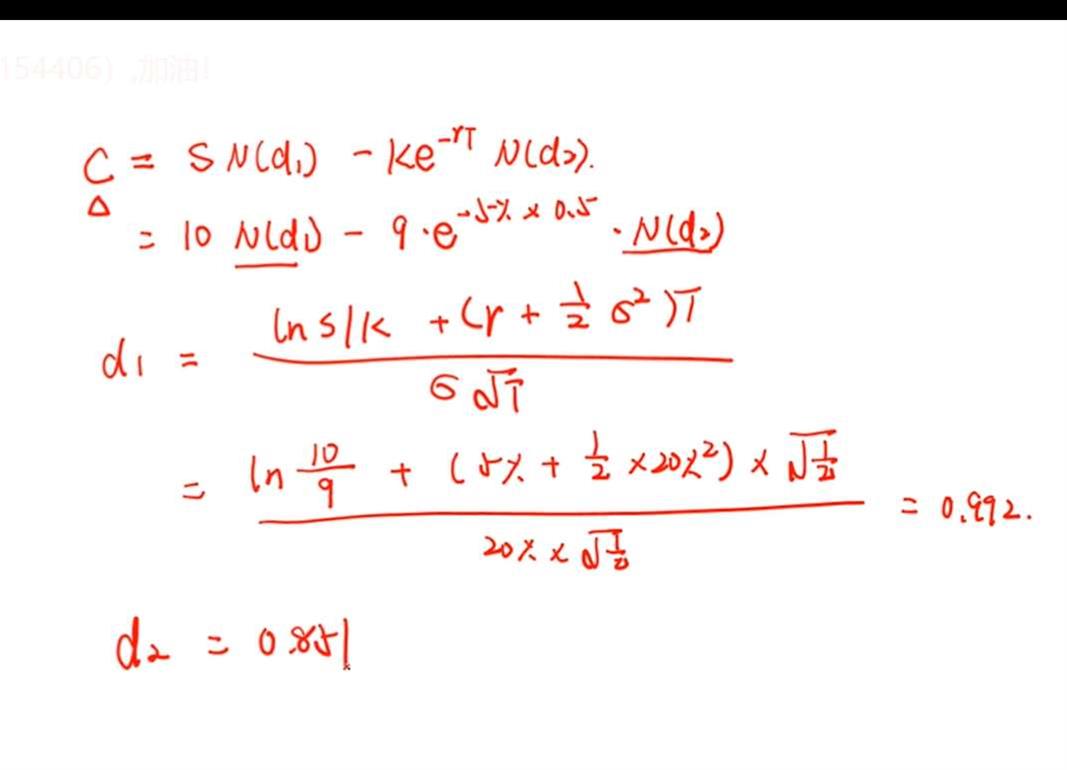 154406）,加油!
C = S N(d₁) - Ke^-rT N(d₂).
Δ
= 10 N(d₁) - 9·e^-5% × 0.5 · N(d₂)
d₁ = (ln S/K + (r + 1/2 σ²)T) / (σ√T)
= (ln 10/9 + (5% + 1/2 × 20%²) × √(1/2)) / (20% × √(1/2)) = 0.992.
d₂ = 0.851